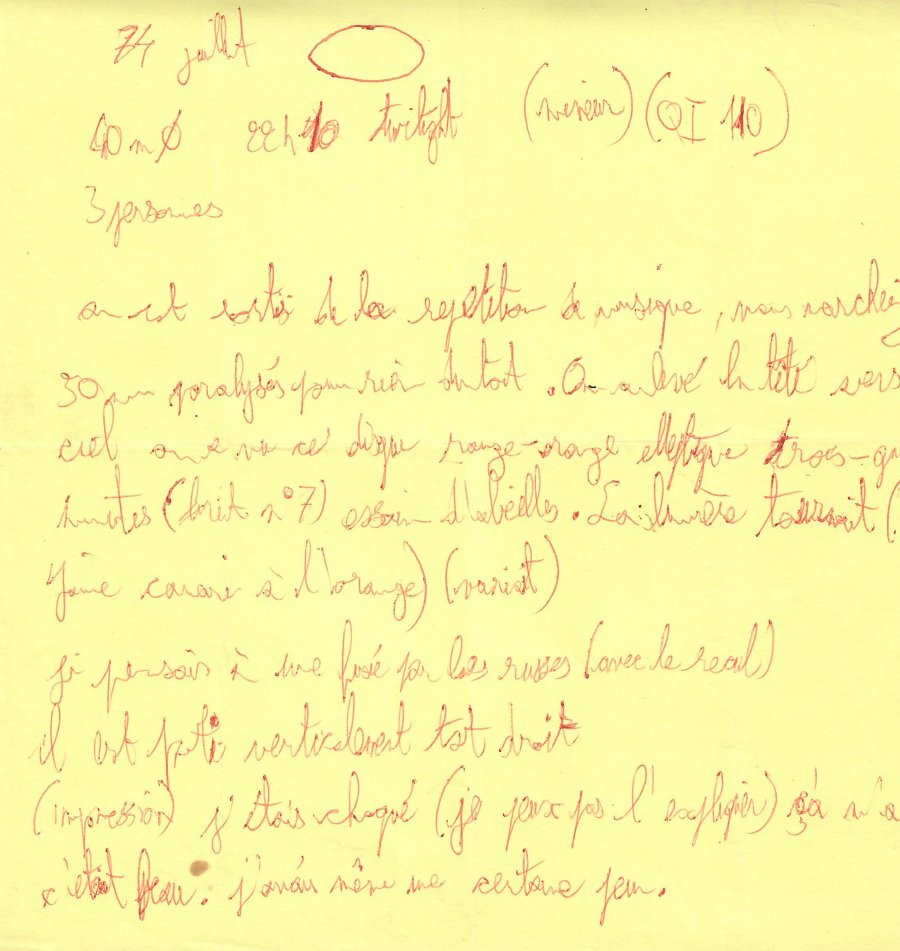 74 juillet
40 m Ø 22h10 twilight (mineur) (QI 110)
3 personnes
on est sortis de la repetition de musique, nous marchein
30 paralysés pour rien du tout. On a levé la tête vers
ciel on a vu ce disque rouge-orange elleptique trois-qu
minutes (bruit n°7) essaim d'abeilles. La lumière tournait (
jaune canari à l'orange) (variait)
je pensais à une fusé par les russes (avec le recul)
il est parti verticalement tout droit
(impression) j'étais choqué (je peux pas l'expliquer) ça n'a
c'était beau. j'avais même une certaine peur.